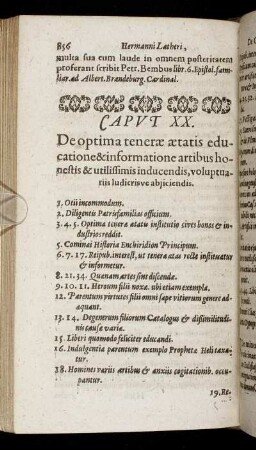 856 Hermanni Latheri,
multa sua cum laude in omnem posteritatem
proferant scribit Petr. Bembus libr. 6. Epistol. fami-
liar. ad Albert. Brandeburg. Cardinal.
CAPVT XX.
De optima teneræ ætatis edu-
catione & informatione artibus ho-
nestis & utilissimis inducendis, voluptua-
riis ludicrisve abjiciendis.
1. Otii incommodum.
2. Diligentis Patrisfamilias officium.
3. 4. 5. Optima tenera ætatu institutio cives bonos & in-
dustrios reddit.
5. Cominai Historia Enchiridion Principum.
6. 7. 17. Reipub. interest, ut tenera ætas recte instituatur
& informetur.
8. 21. 34. Quænam artes sint discendæ.
9. 10. 11. Heroum filii noxa. ubi etiam exempla.
12. Parentum virtutes filii omni sæpe vitiorum genere ad-
æquant.
13. 14. Degenerum filiorum Catalogus & dissimilitudi-
nis causæ variæ.
15. Liberi quomodo feliciter educandi.
16. Indulgentia parentum exemplo Prophetæ Heli taxa-
tur.
18. Homines variis artibus & anxiis cogitationib. occu-
pantur.
19. Re-